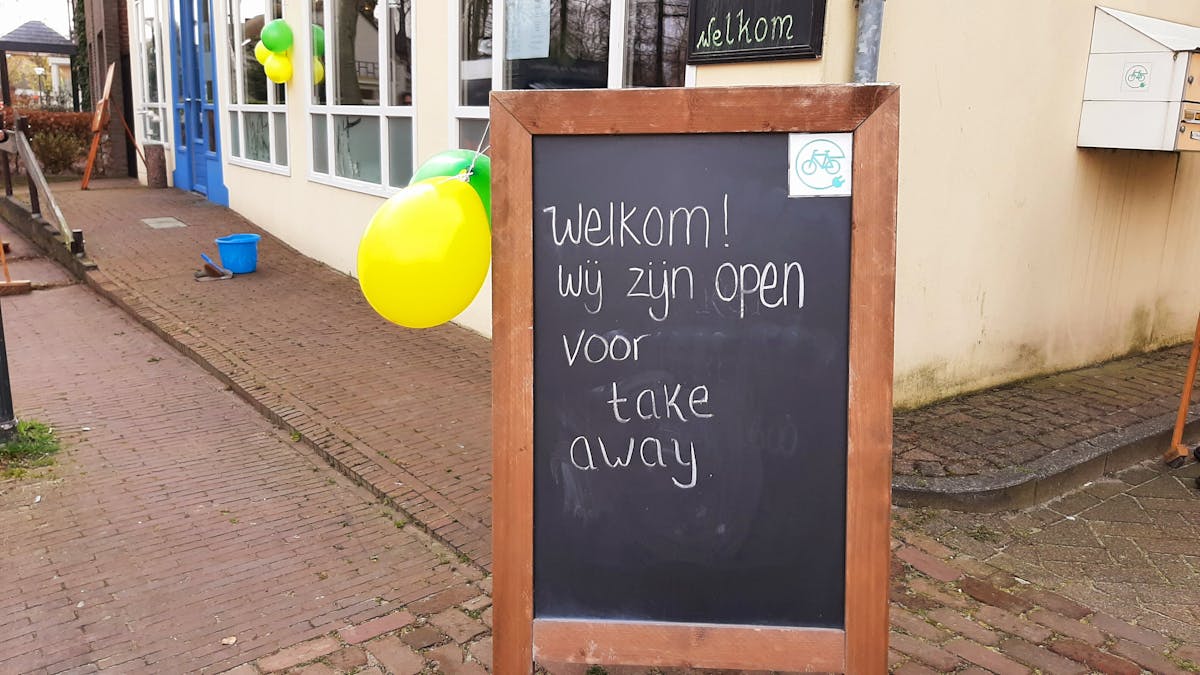 welkom
Welkom!
wij zijn open
voor
take
away